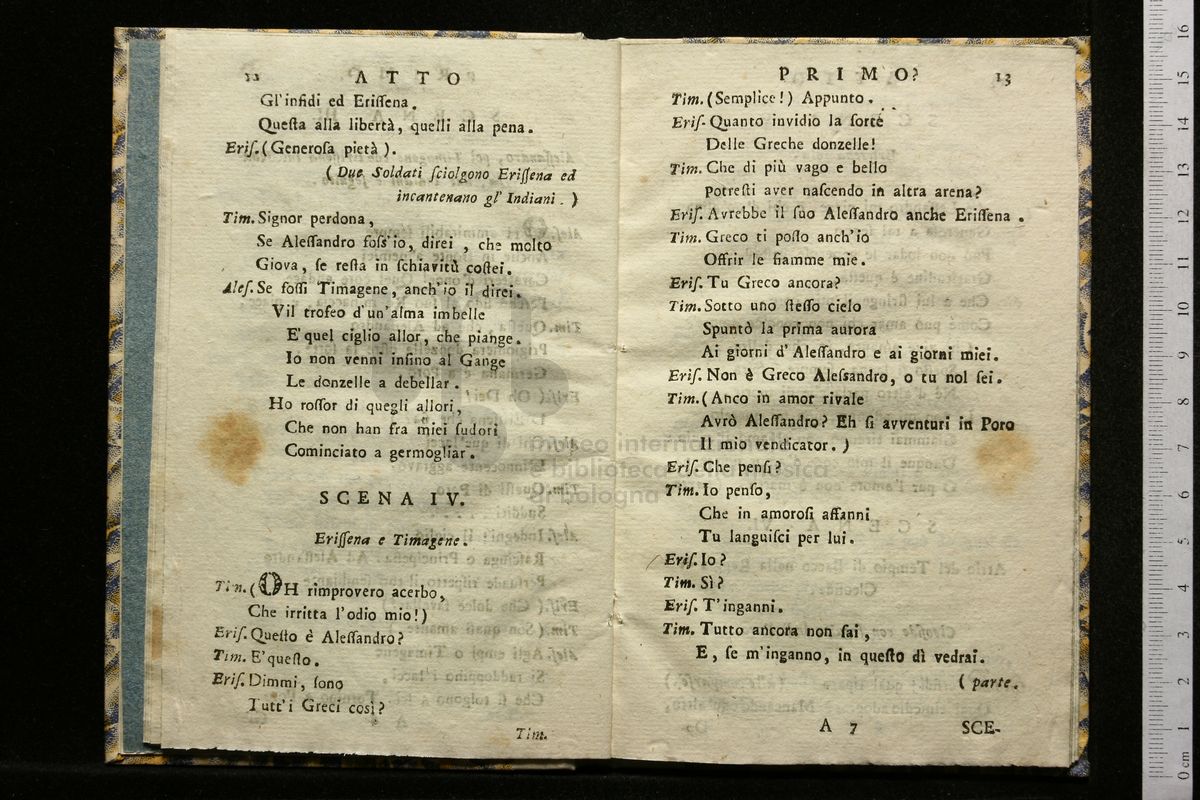 12 ATTO
Gl'infidi ed Eriſſena.
Queſta alla libertà, quelli alla pena.
Eriſ. (Generoſa pietà).
( Due Soldati ſciolgono Eriſſena ed
incantenano gl' Indiani. )
Tim. Signor perdona,
Se Aleſſandro foſs'io, direi, che molto
Giova, ſe reſta in ſchiavitù coſtei.
Aleſ. Se foſſi Timagene, anch'io il direi.
Vil trofeo d'un'alma imbelle
E' quel ciglio allor, che piange.
Io non venni inſino al Gange
Le donzelle a debellar.
Ho roſſor di quegli allori,
Che non han fra miei ſudori
Cominciato a germogliar.
SCENA IV.
Eriſſena e Timagene.
Tim. (OH rimprovero acerbo,
Che irritta l'odio mio!)
Eriſ. Queſto è Aleſſandro?
Tim. E' queſto.
Eriſ. Dimmi, ſono
Tutt'i Greci così?
Tim.
PRIMO? 13
Tim. (Semplice!) Appunto.
Eriſ. Quanto invidio la ſorte
Delle Greche donzelle!
Tim. Che di più vago e bello
potreſti aver naſcendo in altra arena?
Eriſ. Avrebbe il ſuo Aleſſandro anche Eriſſena.
Tim. Greco ti poſſo anch'io
Offrir le fiamme mie.
Eriſ. Tu Greco ancora?
Tim. Sotto uno ſteſſo cielo
Spuntò la prima aurora
Ai giorni d' Aleſſandro e ai giorni miei.
Eriſ. Non è Greco Aleſsandro, o tu nol ſei.
Tim. (Anco in amor rivale
Avrò Aleſſandro? Eh ſi avventuri in Poro
Il mio vendicator.)
Eriſ. Che penſi?
Tim. Io penſo,
Che in amoroſi affanni
Tu languiſci per lui.
Eriſ. Io?
Tim. Sì?
Eriſ. T'inganni.
Tim. Tutto ancora non ſai,
E, ſe m'inganno, in queſto dì vedrai.
( parte.
A 7 SCE-